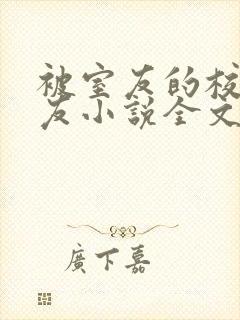 被室友的校
友小說全文
廣下嘉